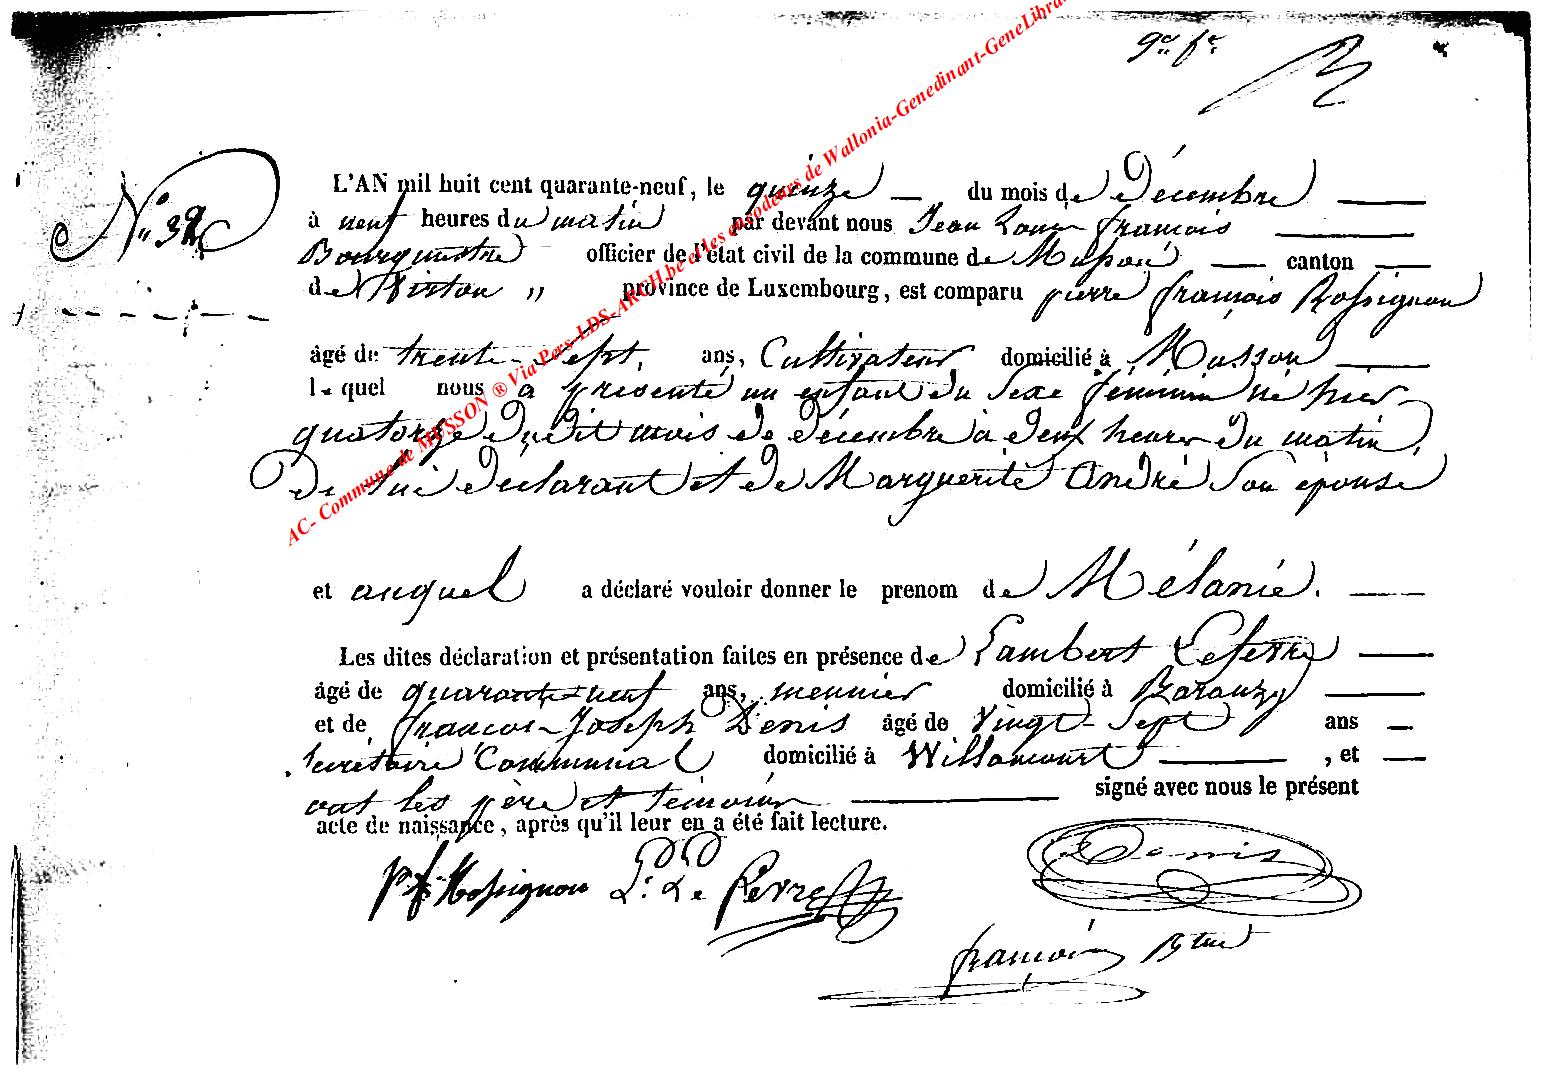 9e fe
AC- Commune de MUSSON ® Via Pers-LDS-ARCH.be et les encodeurs de Wallonia-Genedinant-GeneLibra
L'AN mil huit cent quarante-neuf, le quinze du mois de décembre
N° 32
à neuf heures du matin par devant nous Jean Louis françois
Bourgmestre officier de l'état civil de la commune de Musson canton
de Virton " province de Luxembourg, est comparu pierre françois Rossignon
âgé de trente-sept, ans, Cultivateur domicilié à Musson
lequel nous a présenté un enfant du sexe féminin né hier
quatorze du dit mois de décembre à deux heures du matin,
de lui déclarant et de Marguerite André son épouse
et auquel a déclaré vouloir donner le prenom de Mélanie.
Les dites déclaration et présentation faites en présence de Lambert Lefevre
âgé de quarante-neuf ans, meunier domicilié à Baranzy
et de françois-Joseph Denis âgé de vingt-sept ans
secrétaire Communal domicilié à Willancourt , et
ont les père et témoins signé avec nous le présent
acte de naissance, après qu'il leur en a été fait lecture.
pf Rossignon L. Le Fevre Denis
françois Btre